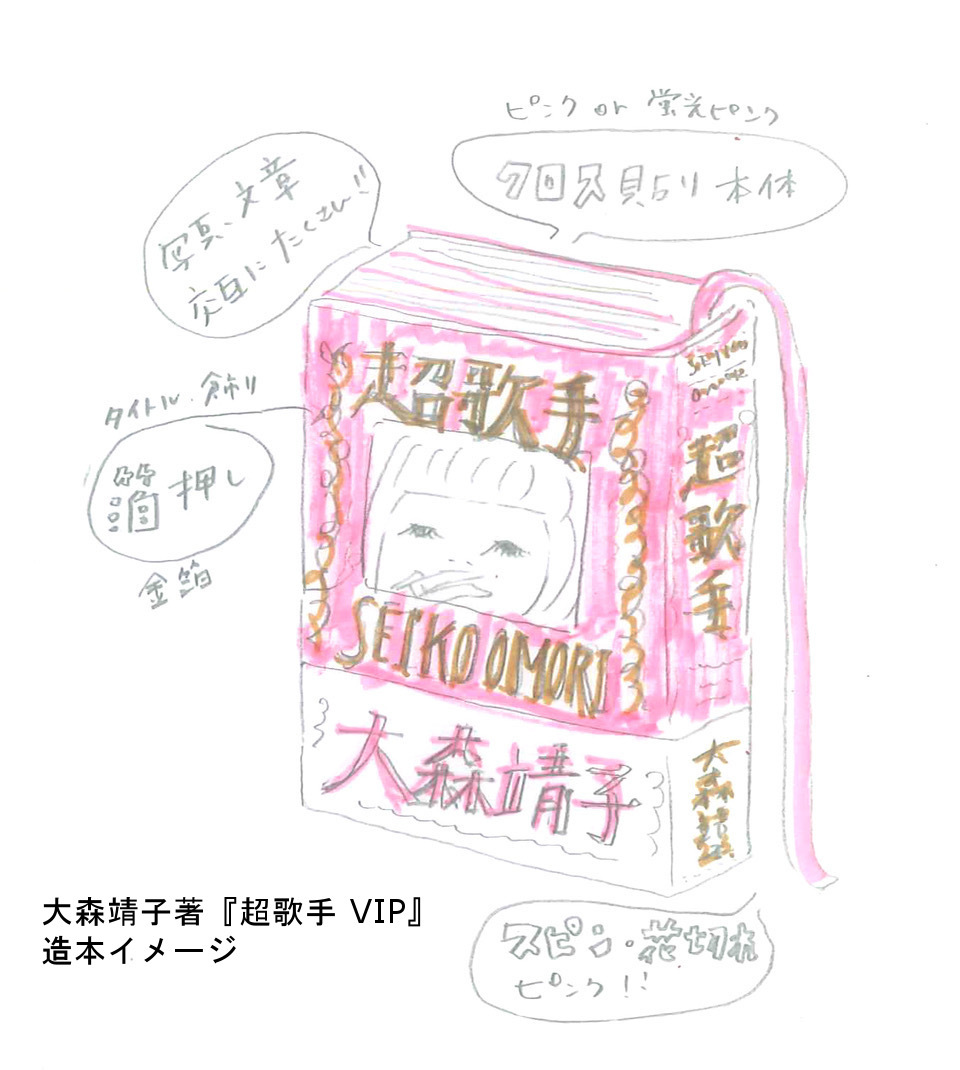 ピンク or 蛍光ピンク
クロス貼り 本体
写真、文章
交互に たくさん!!
タイトル・飾り
箔押し
金箔
超歌手
SEIKO OMORI
大森靖子
超歌手
大森靖子
スピン・花切れ
ピンク!!
大森靖子著『超歌手 VIP』
造本イメージ